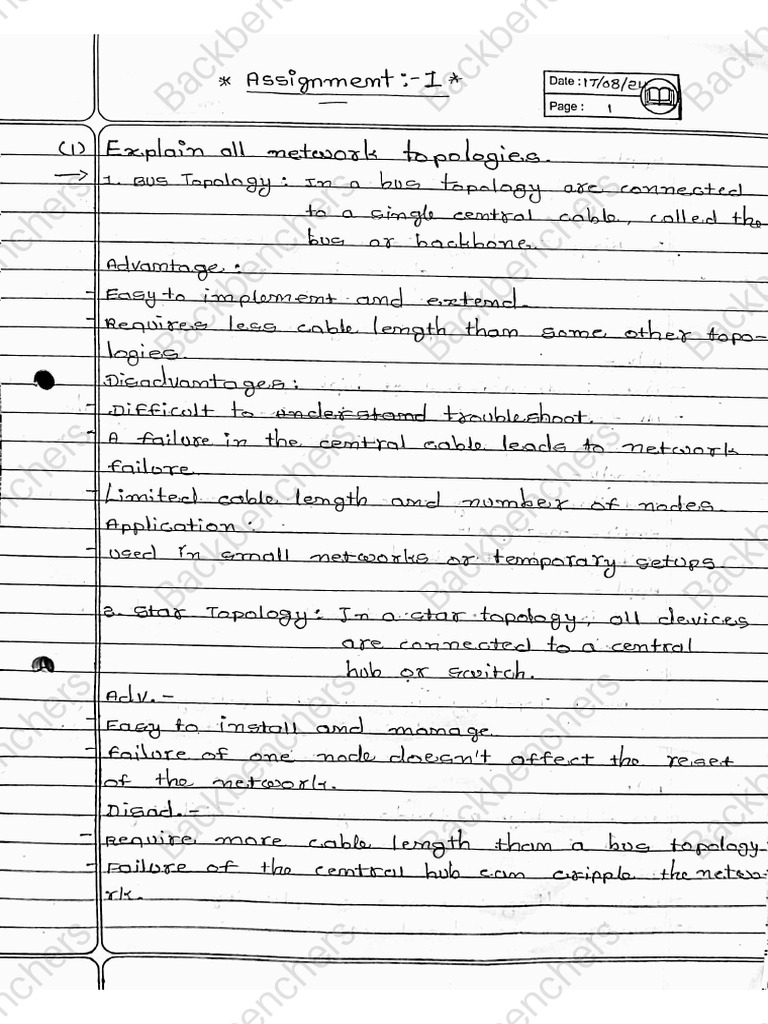 * Assignment :- 1 *
Date : 17/08/24
Page : 1
(1) Explain all network topologies.
→ 1. Bus Topology : In a bus topology are connected
to a single central cable, called the
bus or backbone.
Advantage :
- Easy to implement and extend.
- Requires less cable length than some other topo-
logies.
Disadvantages :
- Difficult to understand troubleshoot.
- A failure in the central cable leads to network
failure.
- Limited cable length and number of nodes.
Application :
- used in small networks or temporary setups
2. Star Topology : In a star topology, all devices
are connected to a central
hub or switch.
Adv. -
- Easy to install and manage.
- failure of one node doesn't affect the reset
of the network.
Disad. -
- Require more cable length than a bus topology.
- Failure of the central hub can cripple the netwo-
rk.
Backbenchers